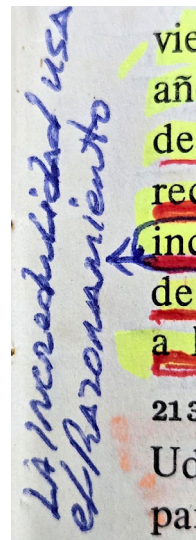 LA incredulidad usa
el Razonamiento
vie
añ
de
rec
inc
de
a
213
Ud
par